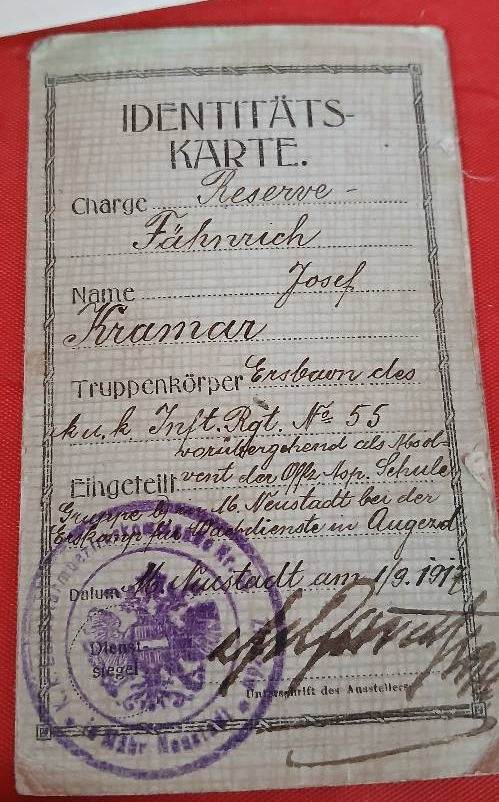 IDENTITÄTS-
KARTE.
Charge Reserve-
Fähnrich
Name Josef
Kramar
Truppenkörper Ersbaon des
k.u.k. Inft. Rgt. No 55
vorübergehend als Absol-
Eingeteilt vent der Offz Asp. Schule
Gruppe M. Neustadt bei der
Erskomp für Wachdienste in Augezd
Datum M. Neustadt am 1/9. 1917
Dienst-
siegel
Unterschrift des Ausstellers
in Mähr Neustadt